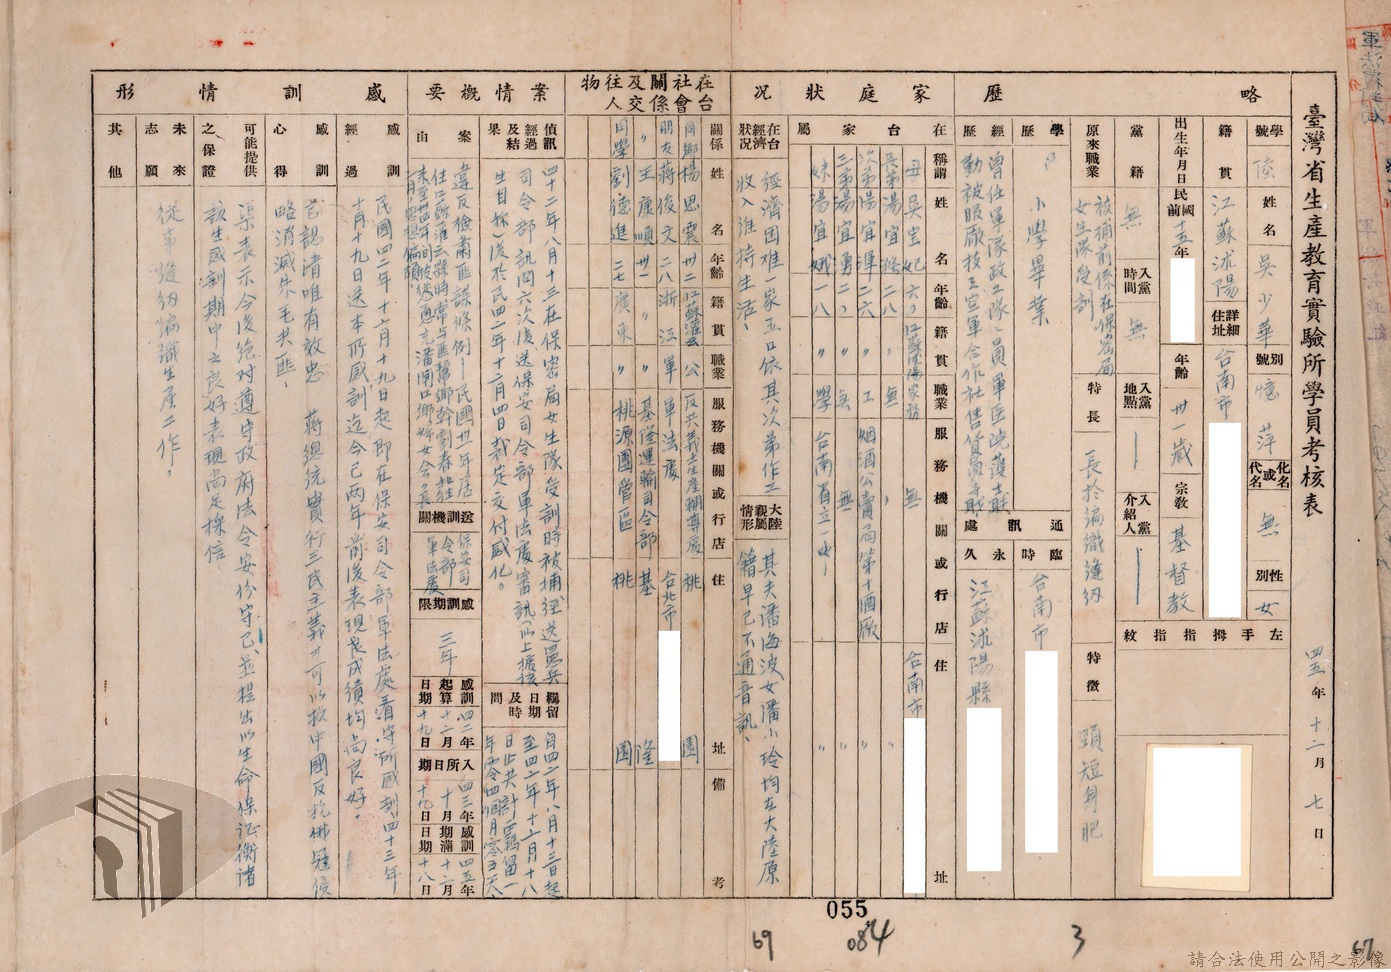 臺灣省生產教育實驗所學員考核表
四五年十二月七日
略歷
學號
姓名 吳少華
別號 憶萍
化名或代名 無
性別 女
籍貫 江蘇沭陽
詳細住址 台南市
左手拇指指紋
出生年月日 民國前十五年
年齡 卅一歲
宗教 基督教
黨籍 無
入黨時間 無
入黨地點
入黨介紹人
原來職業 被捕前係在保密局女生隊受訓
特長 長於編織縫紉
特徵 頸短身肥
學歷 小學畢業
經歷 曾任軍隊政工隊隊員軍醫院護士聯勤被服廠技工空軍合作社售貨員等職
通訊處
臨時 台南市
永久 江蘇沭陽縣
家庭狀況
在台家屬
稱謂 姓名 年齡 籍貫 職業 服務機關或行店 住址
母 吳皇妃 六〇 江蘇沭陽 家務 無 台南市
長弟 湯宜 二八 〃 無 〃 〃
次弟 湯宜渾 二六 〃 工 烟酒公賣局第十酒廠 〃
三弟 湯宜湧 二〇 〃 無 無 〃
妹 湯宜娥 一八 〃 學 台南省立一中 〃
在台經濟狀況 經濟困難一家五口依其次弟作工收入維持生活、
大陸親屬情形 其夫潘海波女潘小玲均在大陸原籍早已不通音訊、
在台社會關係及交往人物
關係 姓名 年齡 籍貫 職業 服務機關或行店 住址 備考
同鄉 楊思震 卅二 江蘇灌雲 公 反共義士生產輔導處 桃園
朋友 蔣俊文 二八 浙江 軍 軍法處 台北市
〃 王康順 卅一 〃 〃 基隆運輸司令部 基隆
同學 劉德進 二七 廣東 〃 桃源團管區 桃園
案情概要
偵訊經過及結果 四十二年八月十三在保密局女生隊受訓時被捕經送憲兵司令部訊問六次後送保安司令部軍法處審訊(以上據該生自稱)後於民四二年十二月四日裁定交付感化。
羈留日期及時間 自四二年八月十三日起至四二年十二月十八日止共計羈留一年零四個月零五天、
案由 違反檢肅匪諜條例—民國卅一年居住江蘇淮
送訓機關 保安司令部軍法處
感訓期限 三年
感訓起算日期 四二年十二月十九日
入所日期 四三年十月十九日
感訓期滿日期 四五年十二月十八日
感訓情形
感訓經過 民國四二年十二月十九日起即在保安司令部軍法處看守所感訓四十三年十月十九日送本所感訓迄今已兩年前後表現良成績均尚良好。
感訓心得 認清唯有效忠 蔣總統實行三民主義才可以救中國反抗俄寇侵略消滅朱毛共匪、
可能提供之保證 渠表示今後絕對遵守政府法令安份守己並提出以生命保證衡諸該生感訓期中之良好表現尚足採信
未來志願 從事縫紉編織生產工作。
其他
055
69
084
3
67
請合法使用公開之影像